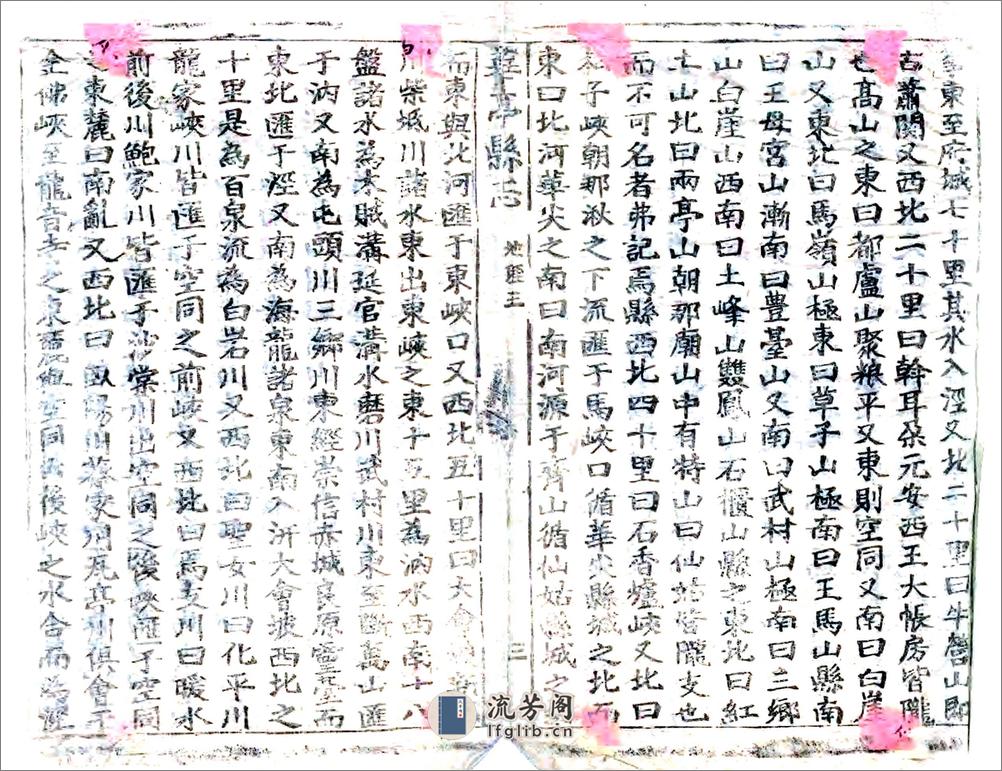 東至府城七十里其水入涇又北二十里曰牛營山即
古蕭關又西北二十里曰斡耳朶元安西王大帳房皆隴
也高山之東曰都盧山聚粮平又東則空同又南曰白崖
山又東北曰馬嶺山極東曰草子山極南曰王馬山縣南
曰王母宮山漸南曰豊臺山又南曰武村山極南曰三鄉
山白崖山西南曰土峰山雙鳳山石櫃山縣之東北曰紅
土山北曰兩亭山朝那廟山中有特山曰仙姑皆隴支也
而不可名者弗記焉縣西北四十里曰石香爐峽又北曰
子峽朝那湫之下流匯于馬峽口循華尖縣城之北而
東曰北河華尖之南曰南河源于齊山循仙姑縣城之
華亭縣志
地理
三
而東與北河匯于東峽口又西北五十里曰大會
川柴坻川諸水東出東峽之東十五里為汭水西南十八
盤諸水為木賊溝延官溝水磨川武村川東至斷萬山匯
于汭又南為屯頭川三鄉川東經崇信赤城良原靈臺而
東北匯于涇又南為海龍諸泉東南入汧大會坡西北之
十里是為百泉流為白岩川又西北曰聖女川曰化平川
龍家峽川皆匯于空同之前峽又西北曰馬支川曰暖水
前後川鮑家川皆匯于沙棠川出空同之後峽匯于空同
之東麓曰南亂又西北曰川蔡家澗瓦亭川俱會于
金佛峽至龍音寺之東麓空同後峽之水合而為涇
流芳阁
lfglib.cn